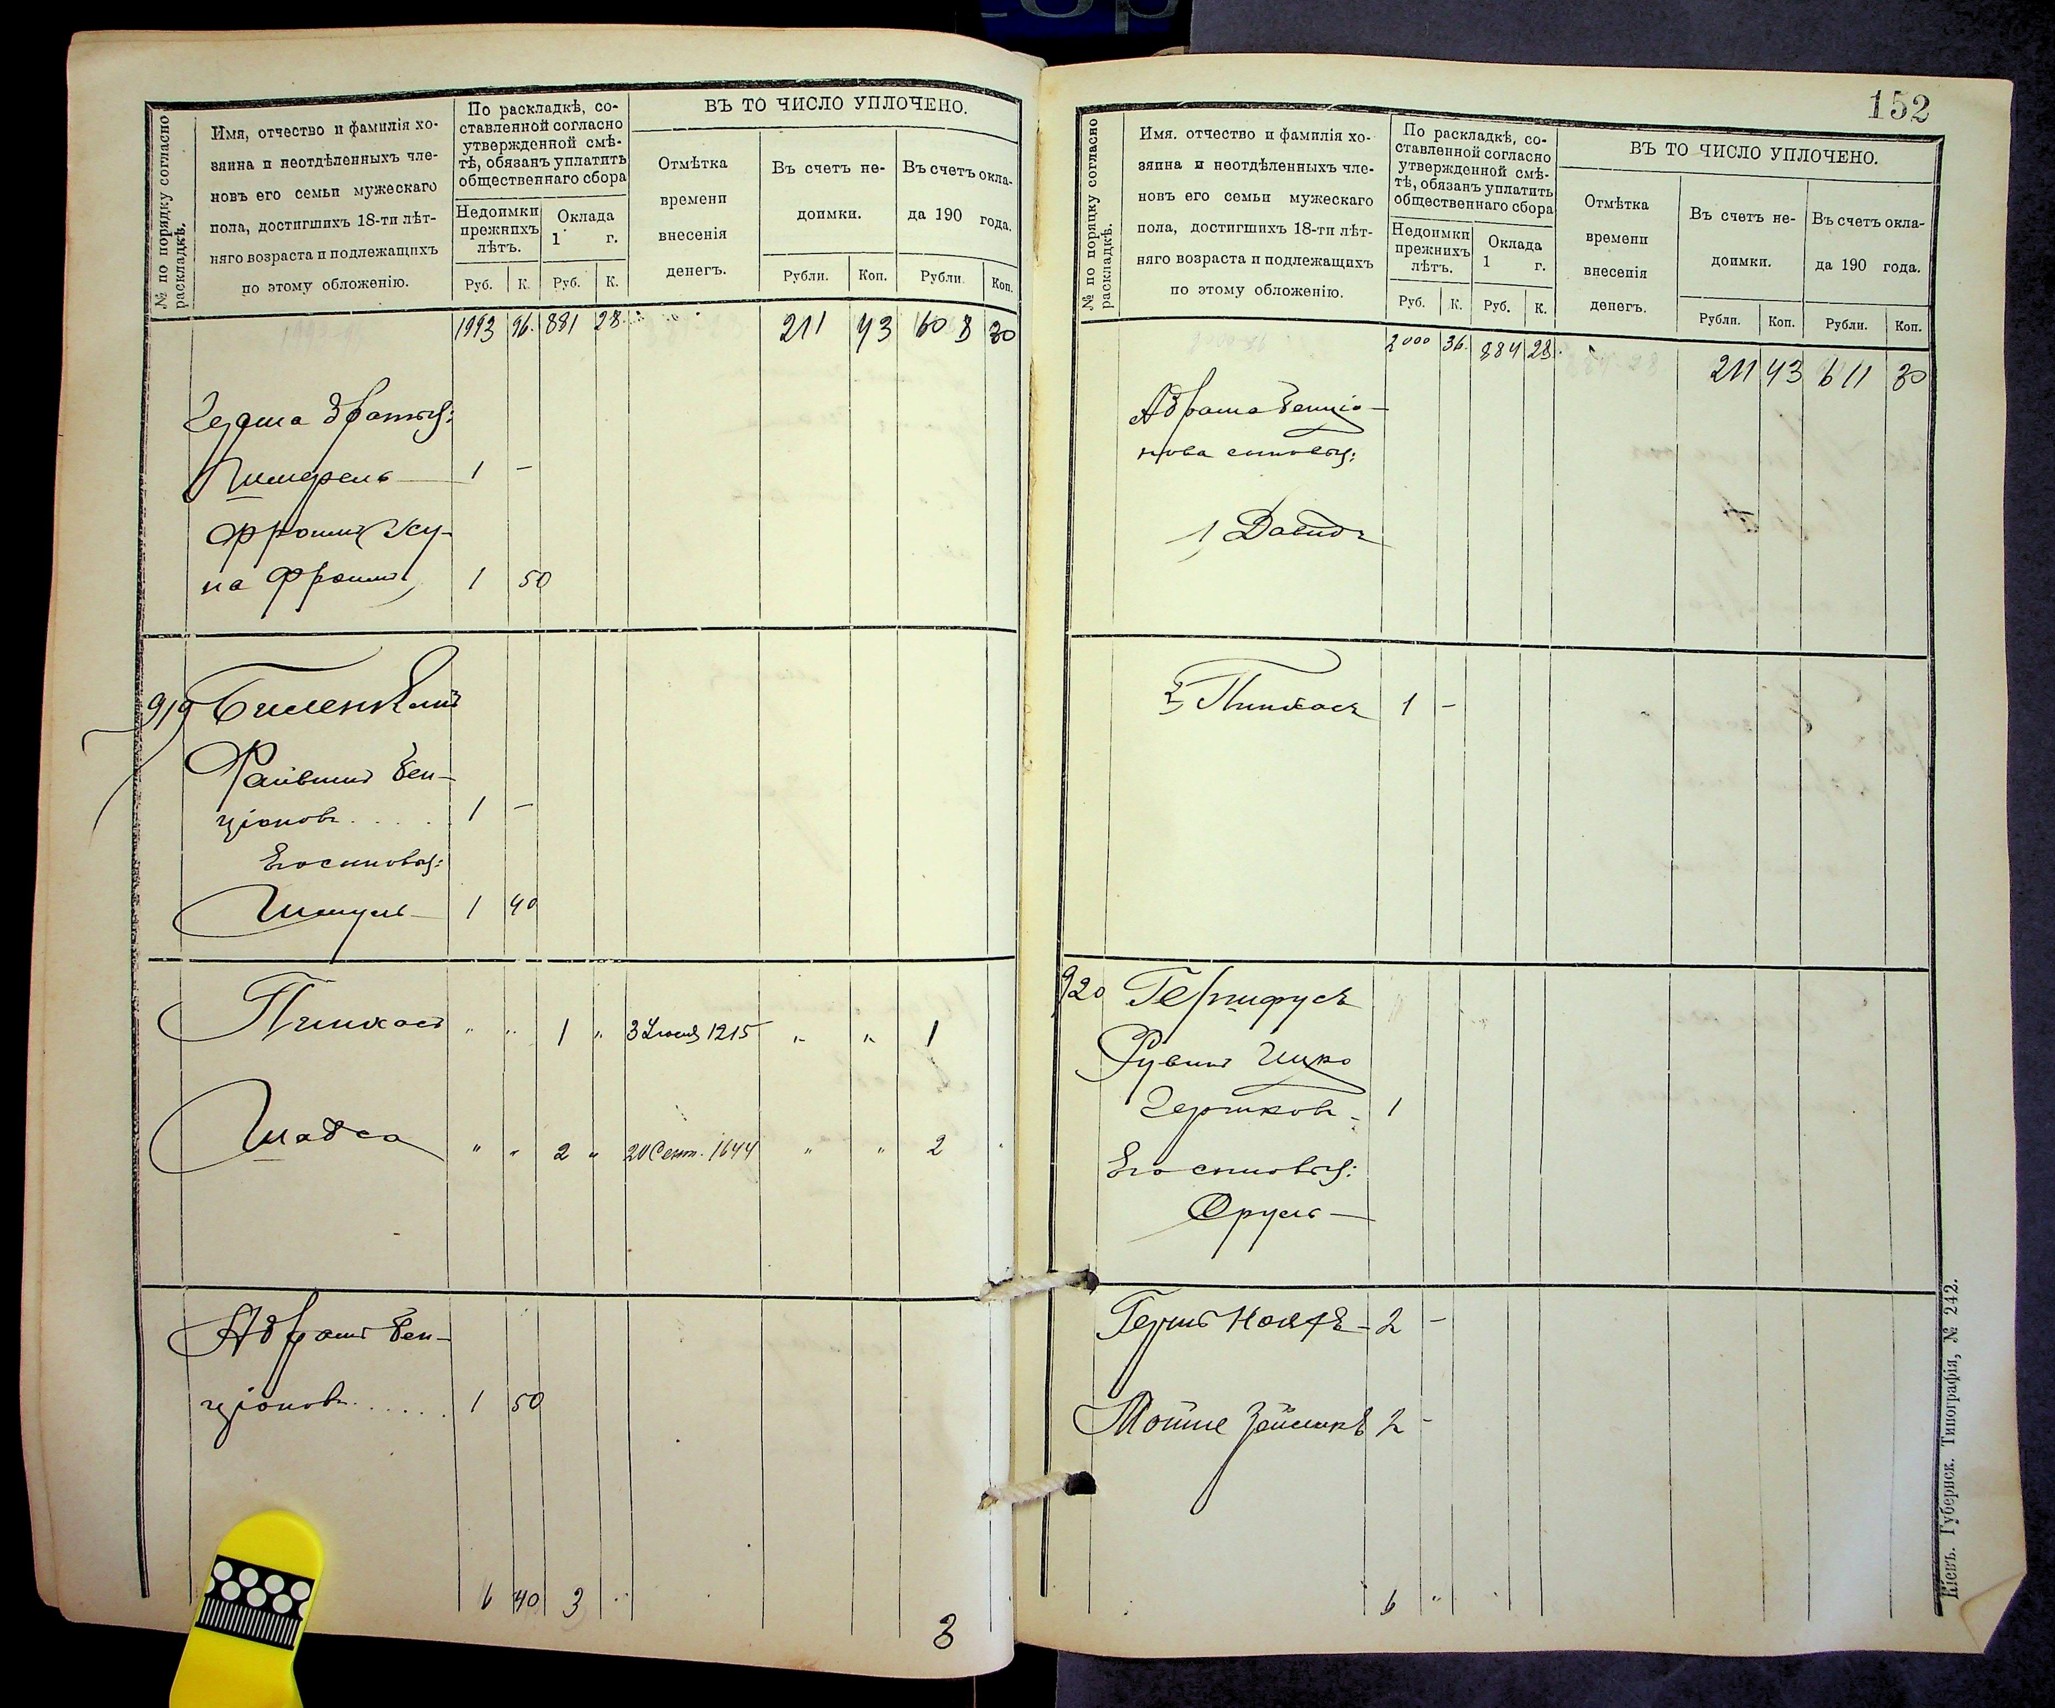 № по порядку согласно
раскладкѣ.
Имя, отчество и фамилія хо-
зяина и неотдѣленныхъ чле-
новъ его семьи мужескаго
пола, достигшихъ 18-ти лѣт-
няго возраста и подлежащихъ
по этому обложенію.
По раскладкѣ, со-
ставленной согласно
утвержденной смѣ-
тѣ, обязанъ уплатить
общественнаго сбора
Недоимки
прежнихъ
лѣтъ.
Оклада
1 г.
Руб. К. Руб. К.
ВЪ ТО ЧИСЛО УПЛОЧЕНО.
Отмѣтка
времени
внесенія
денегъ.
Въ счетъ не-
доимки.
Въ счетъ окла-
да 190 года.
Рубли. Коп. Рубли. Коп.
1993 96. 881 28. 211 43 608 30
Герша братья:
1 —
на Фроим 1 50
919 Биленкій
Файвишъ Бен-
ціоновъ . . . . 1 —
Его сыновья:
Шмуль — 1 40
Пинхасъ " " 1 " 3 Іюня 1215 " " 1
Шабса " " 2 " 20 Сент. 1644 " " 2
Абрамъ Бен-
ціоновъ . . . . . 1 50
6 40 3
3
152
№ по порядку согласно
раскладкѣ.
Имя. отчество и фамилія хо-
зяина и неотдѣленныхъ чле-
новъ его семьи мужескаго
пола, достигшихъ 18-ти лѣт-
няго возраста и подлежащихъ
по этому обложенію.
По раскладкѣ, со-
ставленной согласно
утвержденной смѣ-
тѣ, обязанъ уплатить
общественнаго сбора
Недоимки
прежнихъ
лѣтъ.
Оклада
1 г.
Руб. К. Руб. К.
ВЪ ТО ЧИСЛО УПЛОЧЕНО.
Отмѣтка
времени
внесенія
денегъ.
Въ счетъ не-
доимки.
Въ счетъ окла-
да 190 года.
Рубли. Коп. Рубли. Коп.
2000 36. 884 28. 211 43 611 30
Абрама Бенціо-
нова сыновья:
1, Давидъ
2, Пинхасъ 1 —
920
Рувинъ Ицко
Гершковъ - 1
Его сыновья:
Сруль —
Гершъ — 2 —
Мойше 2 -
6 "
Кіевъ. Губернск. Типографія, № 242.